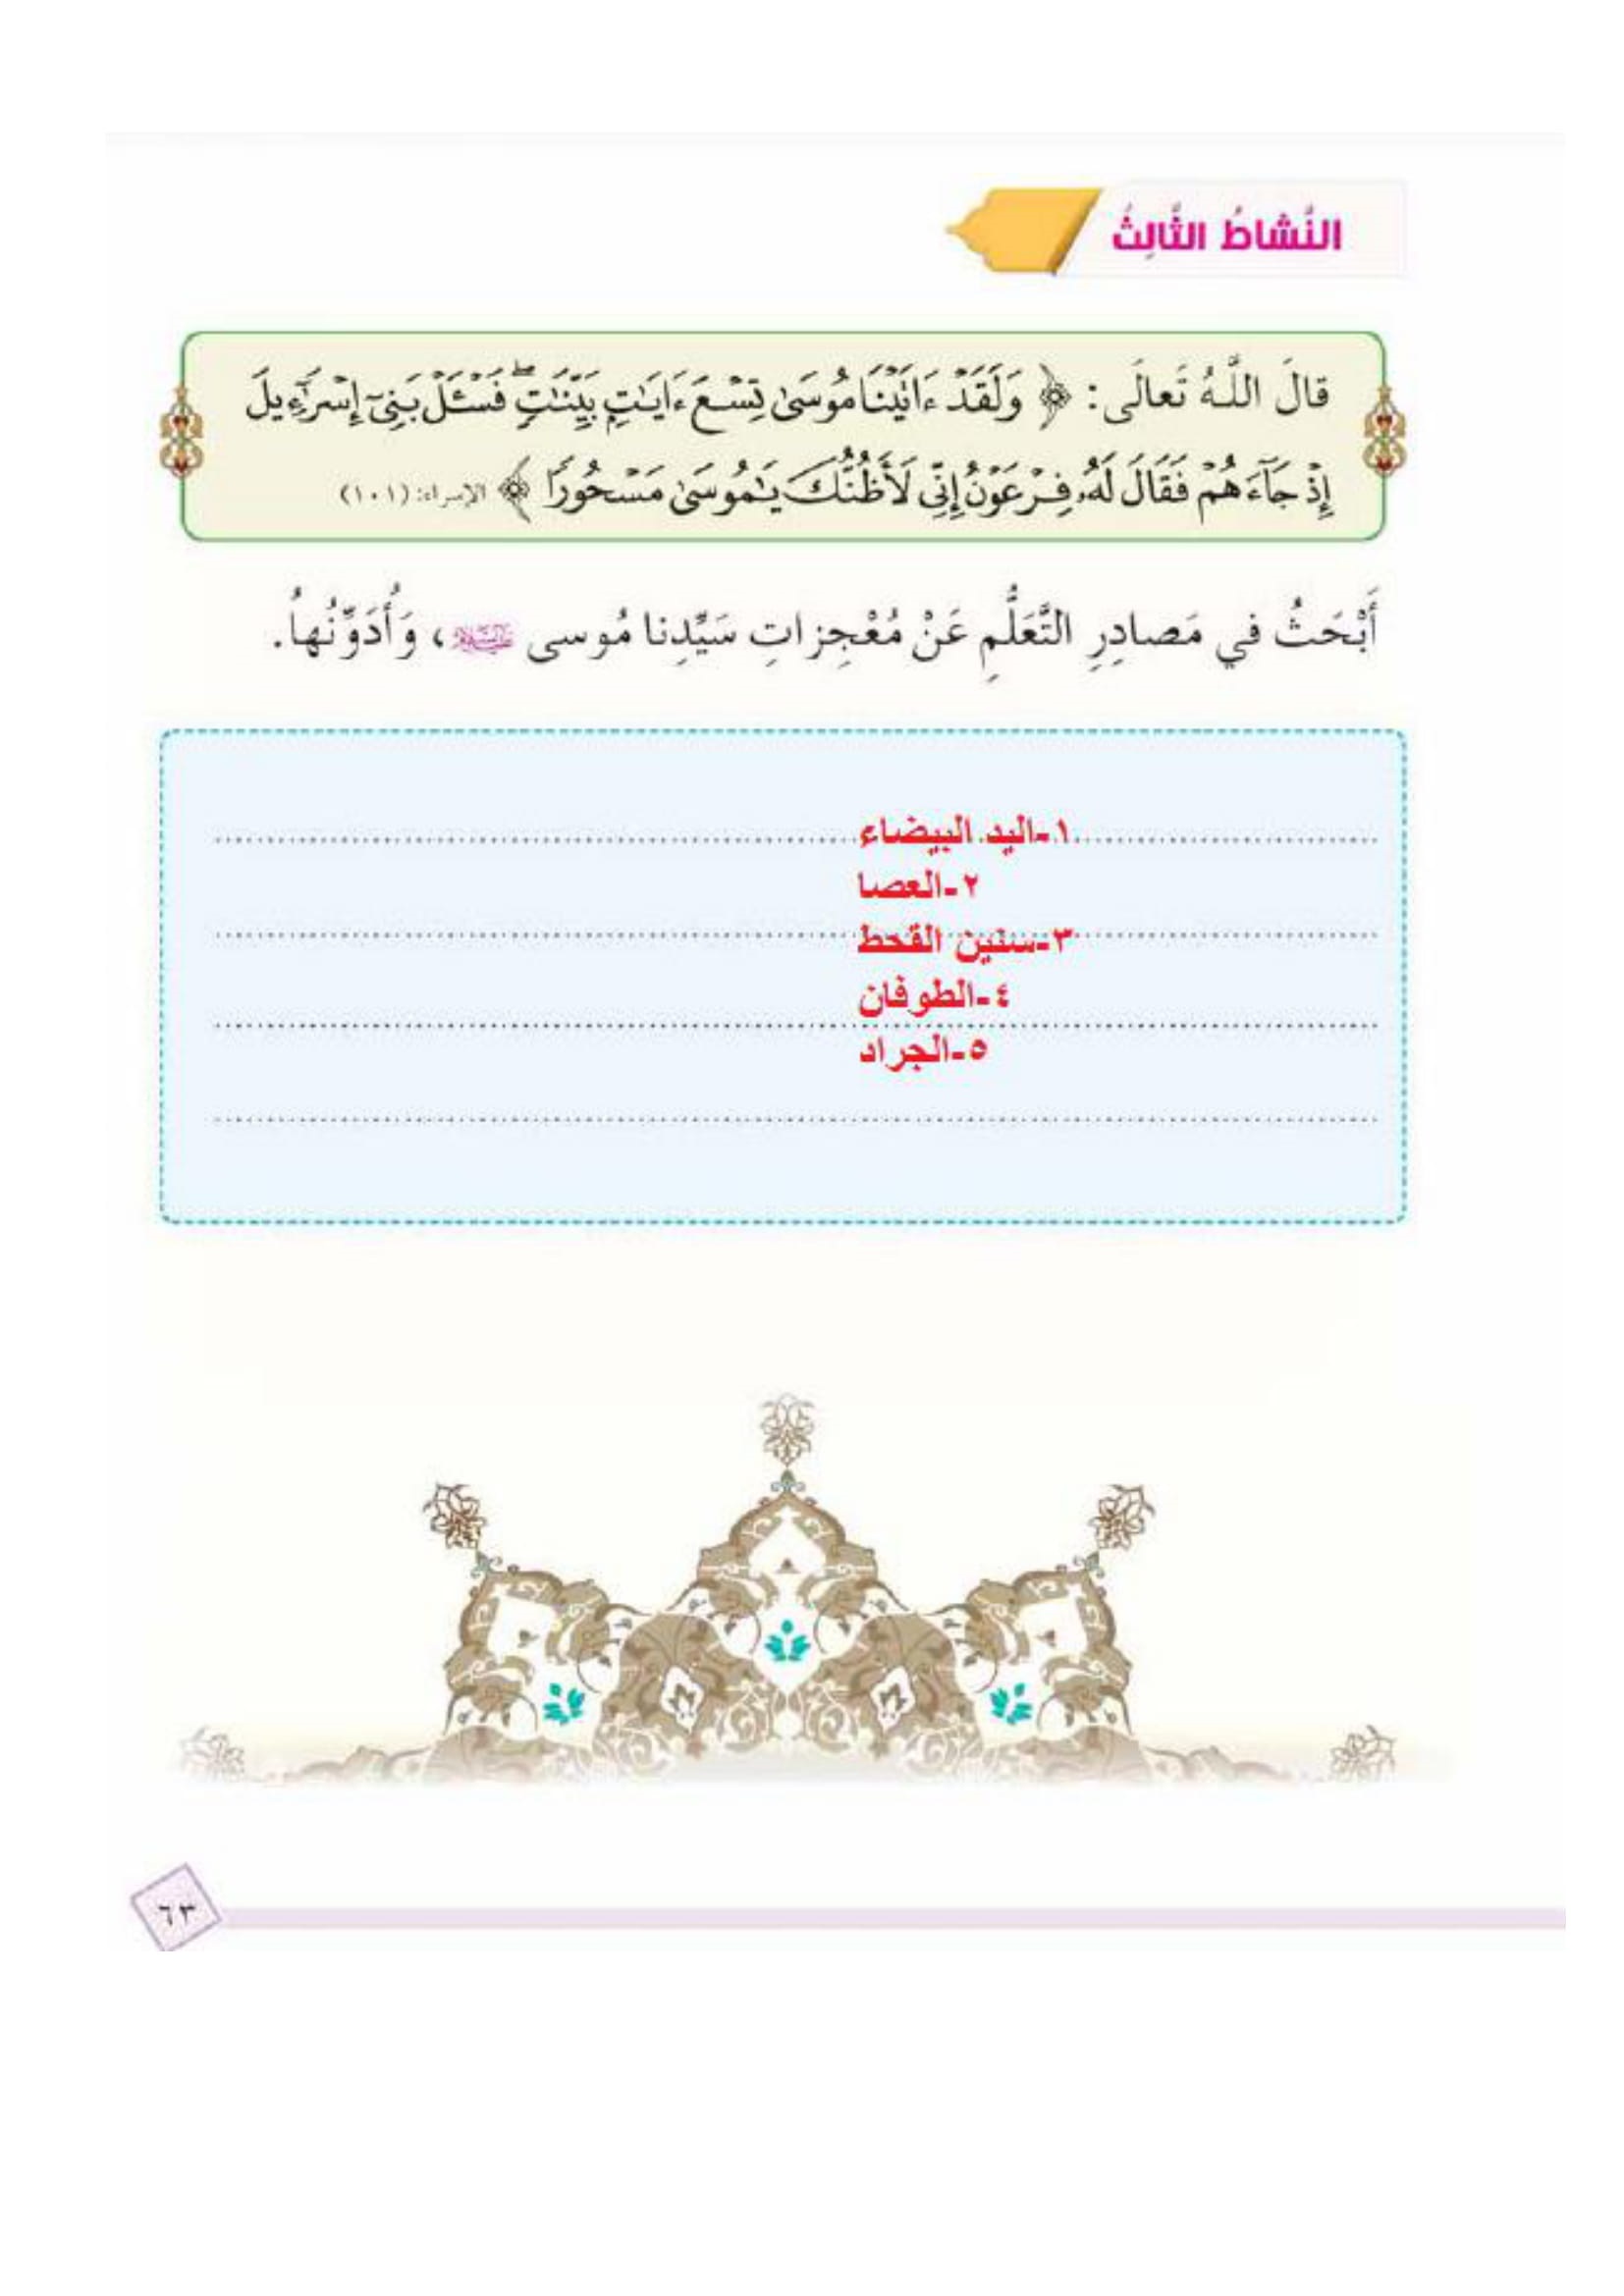 النَّشاطُ الثَّالِثُ
قالَ اللَّهُ تَعالَى: ﴿ وَلَقَدْ ءَاتَيْنَا مُوسَىٰ تِسْعَ ءَايَـٰتٍۭ بَيِّنَـٰتٍ ۖ فَسْـَٔلْ بَنِىٓ إِسْرَٰٓءِيلَ
إِذْ جَآءَهُمْ فَقَالَ لَهُۥ فِرْعَوْنُ إِنِّى لَأَظُنُّكَ يَـٰمُوسَىٰ مَسْحُورًا ﴾ الإسراء: (١٠١)
أَبْحَثُ في مَصادِرِ التَّعَلُّمِ عَنْ مُعْجِزاتِ سَيِّدِنا مُوسى عليه السلام، وَأُدَوِّنُهاُ.
١-اليد البيضاء
٢-العصا
٣-سنين القحط
٤-الطوفان
٥-الجراد
٦٣